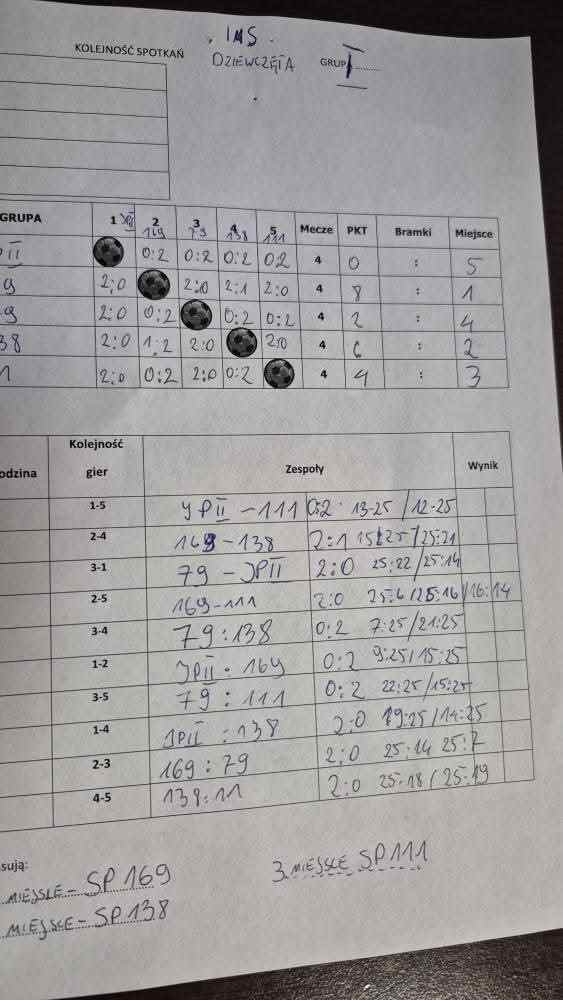 . IMS .
KOLEJNOŚĆ SPOTKAŃ DZIEWCZĘTA GRUP I
GRUPA 1 JPII 2 169 3 79 4 138 5 111 Mecze PKT Bramki Miejsce
PII 0:2 0:2 0:2 0:2 4 0 : 5
9 2:0 2:0 2:1 2:0 4 8 : 1
9 2:0 0:2 0:2 0:2 4 2 : 4
38 2:0 1:2 2:0 2:0 4 6 : 2
1 2:0 0:2 2:0 0:2 4 4 : 3
odzina Kolejność gier Zespoły Wynik
1-5 JPII - 111 0:2 13-25 / 12-25
2-4 169 - 138 2:1 15:25 / 25:21
3-1 79 - JPII 2:0 25:22 / 25:14
2-5 169-111 2:0 25:6 / 25:16 / 16:14
3-4 79:138 0:2 7:25 / 21:25
1-2 JPII - 169 0:2 9:25 / 15:25
3-5 79 : 111 0:2 22:25 / 15:25
1-4 JPII : 138 2:0 19:25 / 14:25
2-3 169 : 79 2:0 25:14 25:7
4-5 138:11 2:0 25:18 / 25:19
sują:
MIEJSCE - SP 169 3 MIEJSCE SP 111
MIEJSCE - SP 138